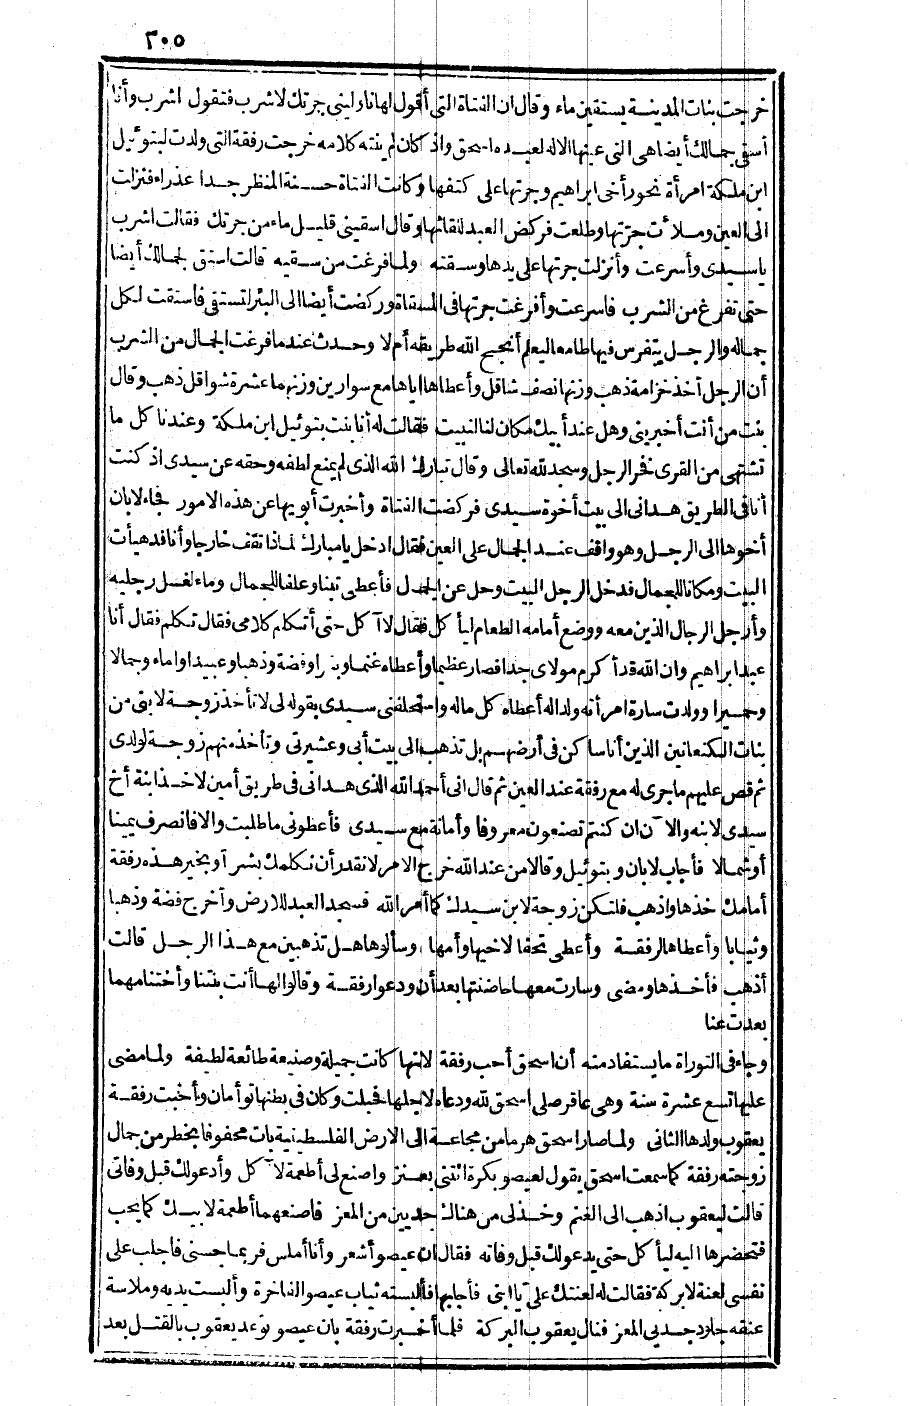 ٣٠٥
خرجت بنات المدينة يستقين ماء وقال ان الفتاة التي أقول لها ناوليني جرتك لاشرب فتقول اشرب وأنا
أسقي جمالك أيضا هي التي عينها الاله لعبده اسحق واذ كان لم ينته كلامه خرجت رفقة التي ولدت لبتوئيل
ابن ملكة امرأة نحور أخي ابراهيم وجرتها على كتفها وكانت الفتاة حسنة المنظر جدا عذراء فنزلت
الى العين وملأت جرتها وطلعت فركض العبد للقائها وقال اسقيني قليل ماء من جرتك فقالت اشرب
يا سيدي وأسرعت وأنزلت جرتها على يدها وسقته ولما فرغت من سقيه قالت استق لجمالك أيضا
حتى تفرغ من الشرب فاسرعت وأفرغت جرتها في المسقاة وركضت أيضا الى البئر لتستقي فاستقت لكل
جماله والرجل يتفرس فيها طامعا ليعلم أنجح الله طريقه أم لا وحدث عندما فرغت الجمال من الشرب
أن الرجل أخذ خزامة ذهب وزنها نصف شاقل وأعطاها اياها مع سوارين وزنهما عشرة شواقل ذهب وقال
بنت من أنت أخبريني وهل عند أبيك مكان لنا لنبيت فقالت له أنا بنت بتوئيل ابن ملكة وعندنا كل ما
تشتهي من القرى فخر الرجل وسجد لله تعالى وقال تبارك الله الذي لم يمنع لطفه وحقه عن سيدي اذ كنت
أنا في الطريق هداني الى بيت أخوة سيدي فركضت الفتاة وأخبرت أبويها عن هذه الامور فجاء لابان
أخوها الى الرجل وهو واقف عند الجمال على العين فقال ادخل يا مبارك لماذا تقف خارجا وأنا قد هيأت
البيت ومكانا للجمال فدخل الرجل البيت وحل عن الجمل فأعطى تبنا وعلفا للجمال وماء لغسل رجليه
وأرجل الرجال الذين معه ووضع أمامه الطعام ليأكل فقال لا آكل حتى أتكلم كلامي فقال تكلم فقال أنا
عبد ابراهيم وان الله قد أكرم مولاي جدا فصار عظيما وأعطاه غنما وبقرا وفضة وذهبا وعبيدا واماء وجمالا
وحميرا وولدت سارة امرأته ولدا له أعطاه كل ماله واستحلفني سيدي بقوله لي لا تأخذ زوجة لابني من
بنات الكنعانيين الذين أنا ساكن في أرضهم بل تذهب الى بيت أبي وعشيرتي وتأخذ منهم زوجة لولدي
ثم قص عليهم ما جرى له مع رفقة عند العين ثم قال اني أحمد الله الذي هداني في طريق أمين لاخذ ابنة أخ
سيدي لابنه والآن ان كنتم تصنعون معروفا وأمانة مع سيدي فأعطوني ما طلبت والا فانصرف يمينا
أو شمالا فأجاب لابان وبتوئيل وقالا من عند الله خرج الامر لا نقدر أن نكلمك بشر أو بخير هذه رفقة
أمامك خذها واذهب فلتكن زوجة لابن سيدك كما أمر الله فسجد العبد للارض وأخرج فضة وذهبا
وثيابا وأعطاها لرفقة وأعطى تحفا لاخيها وأمها وسألوها هل تذهبين مع هذا الرجل قالت
أذهب فأخذها ومضى وسارت معها حاضنتها بعد أن ودعوا رفقة وقالوا لها أنت بنتنا وأختنا مهما
بعدت عنا
وجاء في التوراة ما يستفاد منه أن اسحق أحب رفقة لانها كانت جميلة وصنيعة طائعة لطيفة ولما مضى
عليها تسع عشرة سنة وهي عاقر صلى اسحق لله ودعاه لاجلها فحبلت وكان في بطنها توأمان وأحبت رفقة
يعقوب ولدها الثاني ولما صار اسحق هرما من مجاعة الى الارض الفلسطينية بات محفوفا بخطر من جمال
زوجته رفقة كما سمعت اسحق يقول لعيصو بكره ائتني بعنز واصنع لي أطعمة لآكل وأدعو لك قبل وفاتي
قالت ليعقوب اذهب الى الغنم وخذ لي من هناك جديين من المعز فاصنعهما أطعمة لابيك كما يحب
فتحضرها اليه ليأكل حتى يدعو لك قبل وفاته فقال ان عيصو أشعر وأنا أملس فربما جسني فاجلب على
نفسي لعنة لا بركة فقالت له لعنتك علي يا ابني فأجابها فألبسته ثياب عيصو الفاخرة وألبست يديه وملاسة
عنقه جلود جديي المعز فنال يعقوب البركة فلما أخبرت رفقة بان عيصو توعد يعقوب بالقتل بعد